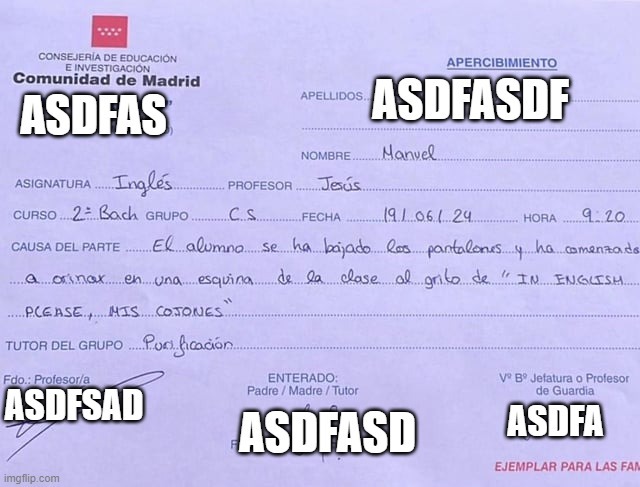 CONSEJERÍA DE EDUCACIÓN
E INVESTIGACIÓN
Comunidad de Madrid
ASDFAS
APERCIBIMIENTO
APELLIDOS
ASDFASDF
NOMBRE Manuel
ASIGNATURA Inglés PROFESOR Jesús
CURSO 2º Bach GRUPO C.S FECHA 19/06/24 HORA 9:20
CAUSA DEL PARTE El alumno se ha bajado los pantalones y ha comenzado
a orinar en una esquina de la clase al grito de "IN ENGLISH
PLEASE, MIS COJONES"
TUTOR DEL GRUPO Purificación
Fdo.: Profesor/a
ASDFSAD
ENTERADO:
Padre / Madre / Tutor
ASDFASD
Vº Bº Jefatura o Profesor
de Guardia
ASDFA
EJEMPLAR PARA LAS FAM
imgflip.com